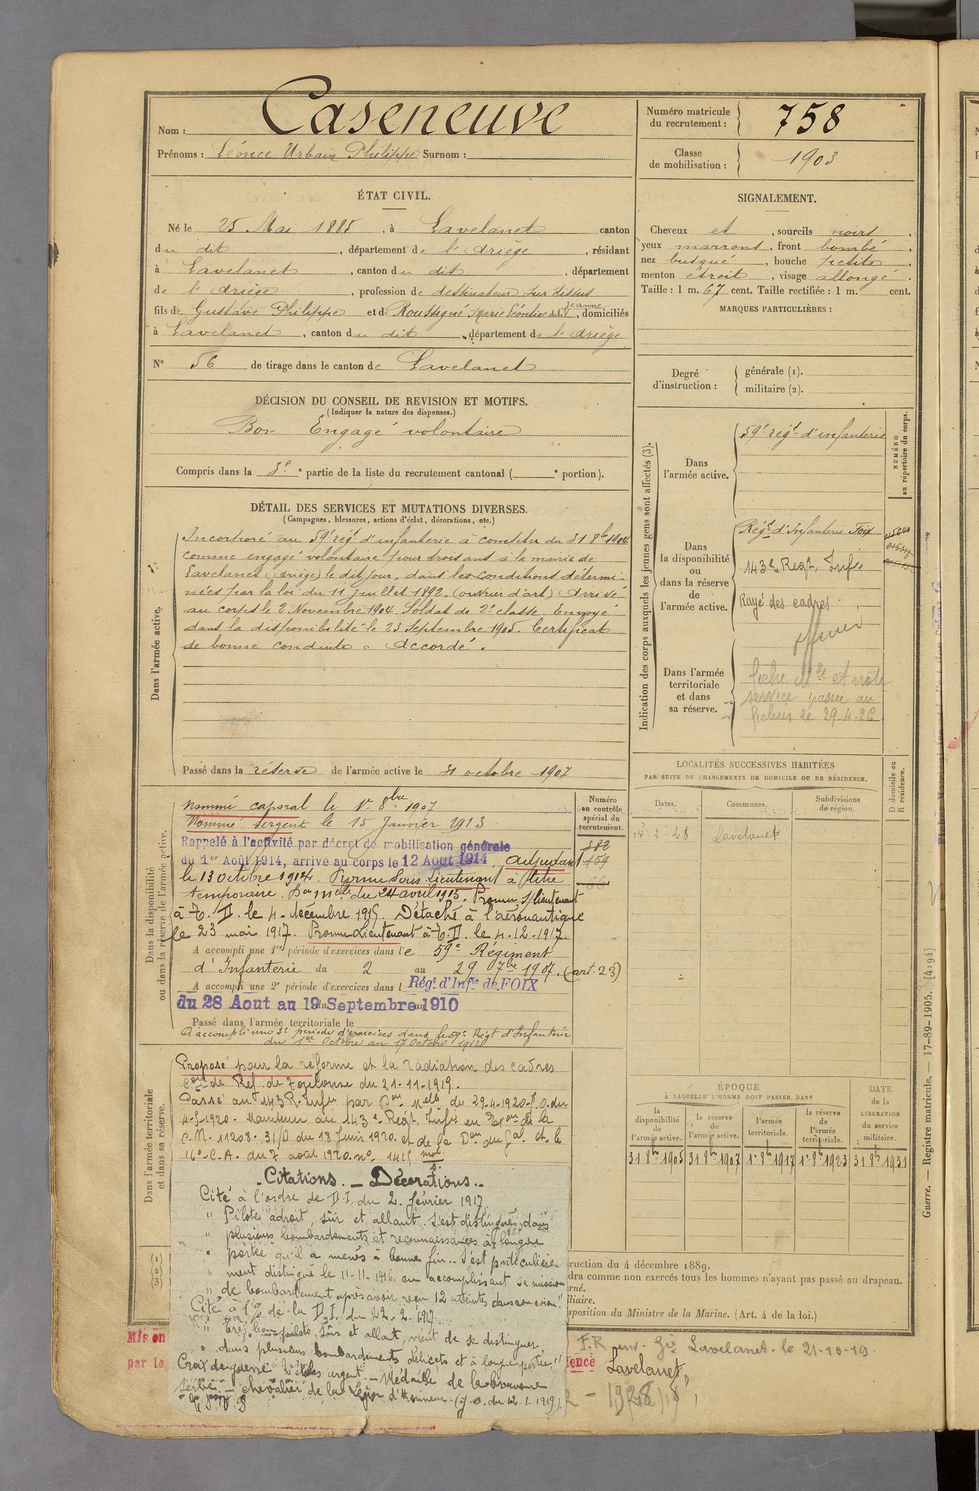 Nom : Caseneuve
Prénoms : Léonce Urbain Philippe Surnom :
Numéro matricule du recrutement : 758
Classe de mobilisation : 1903
ÉTAT CIVIL.
Né le 25 Mai 1885, à Lavelanet canton
du dit, département de l'Ariège, résidant
à Lavelanet, canton du dit, département
de l'Ariège, profession de dessinateur sur tissus
fils de Gustave Philippe et de Roussigné Marie Léontine Jeanne, domiciliés
à Lavelanet, canton du dit, département de l'Ariège
N° 56 de tirage dans le canton de Lavelanet
DÉCISION DU CONSEIL DE REVISION ET MOTIFS.
(Indiquer la nature des dispenses.)
Bon Engagé volontaire
Compris dans la 3e partie de la liste du recrutement cantonal ( ° portion).
SIGNALEMENT.
Cheveux et, sourcils noirs,
yeux marrons, front bombé,
nez busqué, bouche petite,
menton étroit, visage allongé.
Taille : 1 m. 67 cent. Taille rectifiée : 1 m. cent.
MARQUES PARTICULIÈRES :
Degré d'instruction : générale (1).
militaire (2).
DÉTAIL DES SERVICES ET MUTATIONS DIVERSES.
(Campagnes, blessures, actions d'éclat, décorations, etc.)
Dans l'armée active.
Incorporé au 59e régt d'infanterie à compter du 31 8bre 1904
comme engagé volontaire pour trois ans à la mairie de
Lavelanet (Ariège) le dit jour, dans les conditions détermi-
nées par la loi du 11 juillet 1892. (ouvrier d'art) Arrivé
au corps le 2 Novembre 1904. Soldat de 2e classe. Envoyé
dans la disponibilité le 23 Septembre 1905. Certificat
de bonne conduite « Accordé ».
Passé dans la réserve de l'armée active le 31 octobre 1907
Dans la disponibilité ou dans la réserve de l'armée active.
Nommé caporal le 1er 8bre 1907
Nommé sergent le 15 Janvier 1913
Rappelé à l'activité par décret de mobilisation générale
du 1er Août 1914, arrivé au corps le 12 Août 1914, adjudant
le 13 octobre 1914. Promu Sous-lieutenant à titre
temporaire Don mlle du 24 avril 1915. Promu s/lieutenant
à T. D. le 4 décembre 1915. Détaché à l'aéronautique
le 23 mai 1917. Promu Lieutenant à T. D. le 4-12-1917.
A accompli une 1re période d'exercices dans le 59e Régiment
d'Infanterie du 2 au 29 7bre 1907. (art. 23)
A accompli une 2e période d'exercices dans l Rég. d'Infie de FOIX
du 28 Aout au 19 Septembre 1910
Passé dans l'armée territoriale le
A accompli une 3e période d'exercices dans le 59e Régt d'Infanterie
du 1er Octobre au 17 Octobre 1912
Numéro au contrôle spécial du recrutement.
Dans l'armée territoriale et dans sa réserve.
Proposé pour la réforme et la radiation des cadres
con de Réf. de Toulouse du 21-11-1919.
Passé au 143 R. Infie par Don Mlle du 29-4-1920 J.O. du
4-5-1920. Maintenu au 143e Regt. Infie
C.M. 11208. 31/D. du 18 Juin 1920. et de la Don du Gal Ct le
16e C.A. du 7 août 1920 no 1415
Citations. — Décorations.
Cité à l'ordre de D.I. du 2 février 1917
" Pilote adroit, sûr et allant, s'est distingué dans
" plusieurs bombardements et reconnaissances à longue
" portée qu'il a menés à bonne fin. S'est particulière-
" ment distingué le 11-11-1916 en accomplissant sa mission
" de bombardement après avoir reçu 12 atteintes dans son avion."
Cité à l'o/ de la D.I. du 22. 2. 1917.
" Très bon pilote, sûr et allant, vient de se distinguer
" dans plusieurs bombardements délicats et à longue portée."
Croix de guerre 2 étoiles argent. — Médaille de la bravoure
serbe. — Chevalier de la Légion d'Honneur. (J.O. du 12.1.1919)
Indication des corps auxquels les jeunes gens sont affectés (3).
NUMÉRO au répertoire du corps.
Dans l'armée active.
59e régt d'infanterie
Dans la disponibilité ou dans la réserve de l'armée active.
Régt d'Infanterie Foix
143e Regt Infie
Rayé des cadres
officier
Dans l'armée territoriale et dans sa réserve.
fiches de 29-4-26
LOCALITÉS SUCCESSIVES HABITÉES
PAR SUITE DE CHANGEMENTS DE DOMICILE OU DE RÉSIDENCE.
Dates. Communes. Subdivisions de région. D domicile ou R résidence.
Lavelanet
ÉPOQUE
À LAQUELLE L'HOMME DOIT PASSER DANS
la disponibilité de l'armée active. la réserve de l'armée active. l'armée territoriale. la réserve de l'armée territoriale. DATE de la LIBÉRATION du service militaire.
31 8bre 1905 31 8bre 1907 1er 8bre 1917 1er 8bre 1923 31 8bre 1931
(1)
(2)
(3)
ruction du 4 décembre 1889.
dra comme non exercés tous les hommes n'ayant pas passé au drapeau.
rné.
iliaire.
sposition du Ministre de la Marine. (Art. 4 de la loi.)
Mis en
par le
F.R Lavelanet. le 21-10-19.
Lavelanet,
Guerre. — Registre matricule. — 17-89-1905. [4194]